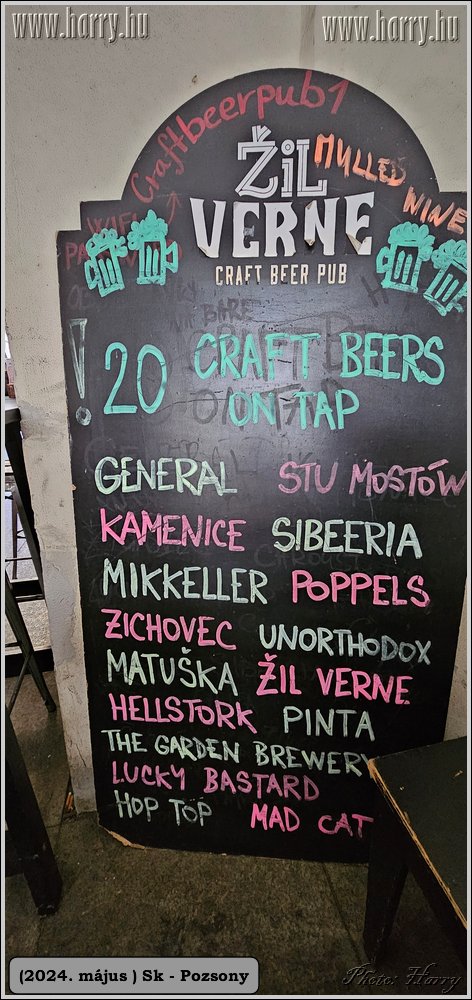 www.harry.hu www.harry.hu
Craftbeerpub1
ŽiL
VERNE
CRAFT BEER PUB
MULLED
WINE
WIFI
20 CRAFT BEERS
ON TAP
GENERAL STU MOSTÓW
KAMENICE SIBEERIA
MIKKELLER POPPELS
ZICHOVEC UNORTHODOX
MATUŠKA ŽIL VERNE
HELLSTORK PINTA
THE GARDEN BREWERY
LUCKY BASTARD
HOP TOP MAD CAT
(2024. május ) Sk - Pozsony
Photo: Harry